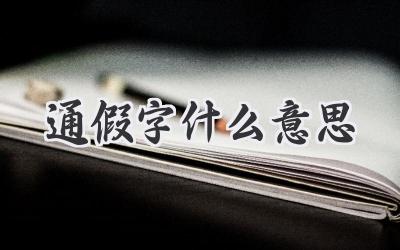 通假字什么意思